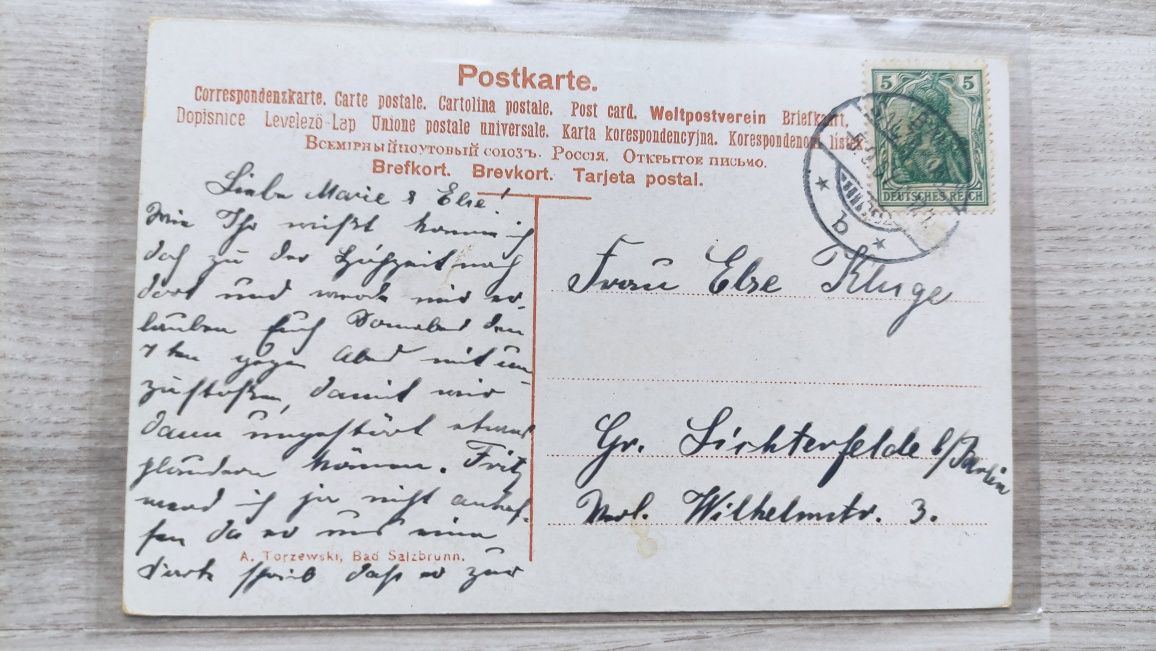 Postkarte.
Correspondenzkarte. Carte postale. Cartolina postale. Post card. Weltpostverein Briefkaart.
Dopisnice Levelező-Lap Unione postale universale. Karta korespondencyjna. Korespondenční lístek.
Всемірныйпоутовый союзъ. Россія. Открытое письмо.
Brefkort. Brevkort. Tarjeta postal.
5 5
DEUTSCHES REICH
Liebe Marie & Else!
Wie Ihr wißt komme ich
doch zu der Hochzeit nach
dort und werde mir er-
lauben Euch Sonnabend den
7ten gegen Abend mit
zustoßen, damit wir
dann ungestört etwas
plaudern können. Fritz
werd ich ja nicht antref-
fen da er uns eine
Karte schrieb daß er zur
A. Torzewski, Bad Salzbrunn.
Frau Else Kluge
Gr. Lichterfelde b/Berlin
Wilhelmstr. 3.